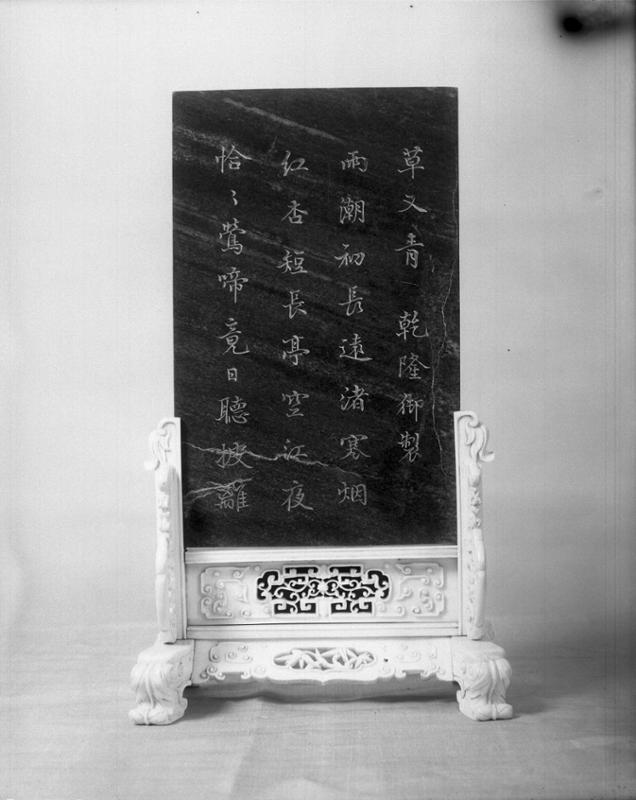 恰〻鶯啼竟日聽披離
紅杏短長亭空江夜
雨潮初長遠渚寒烟
草又青 乾隆御製